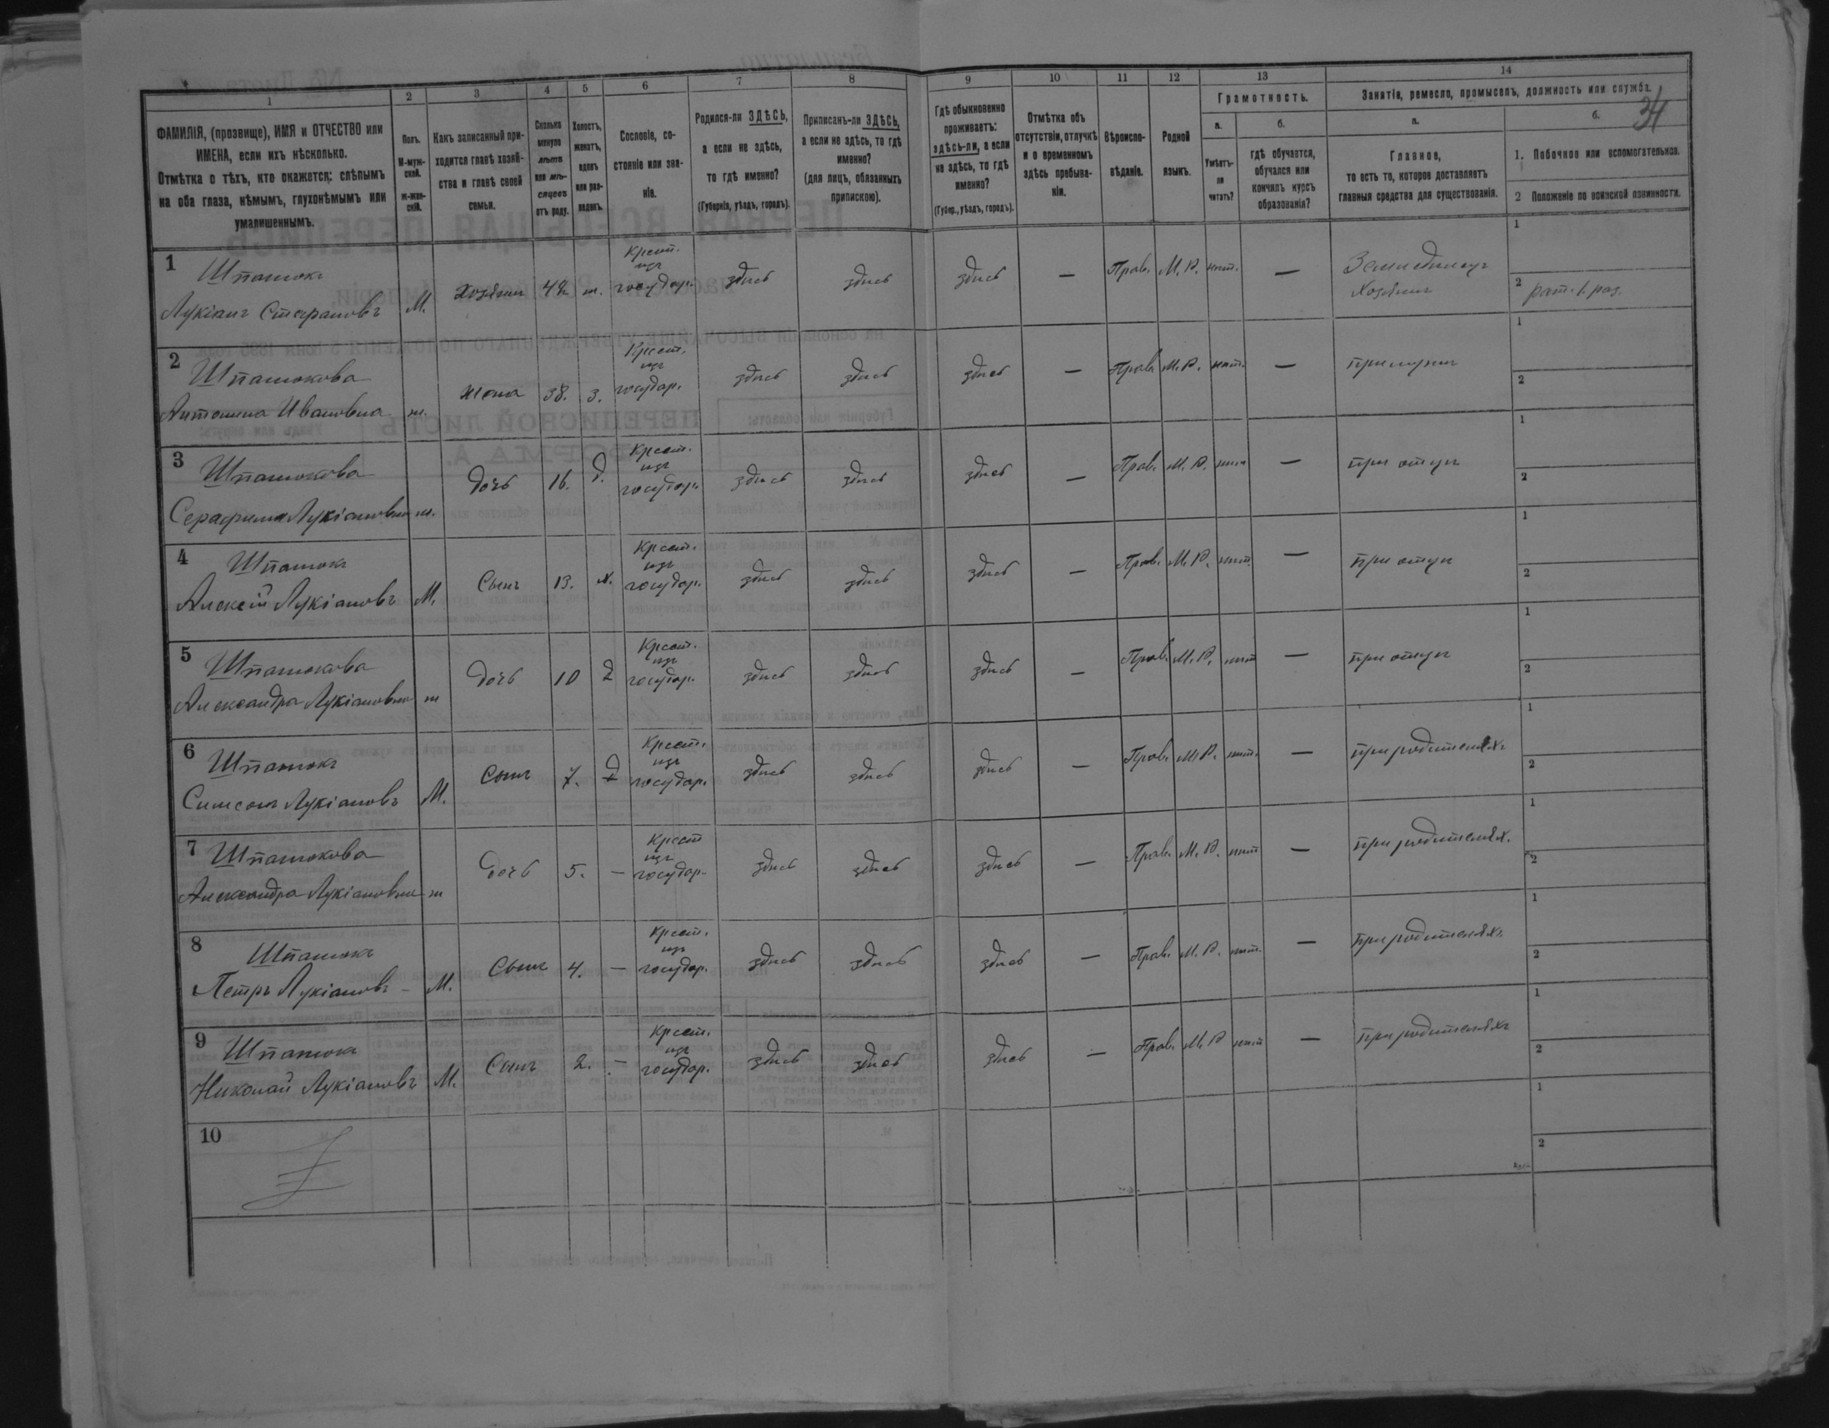 34
1 2 3 4 5 6 7 8 9 10 11 12 13 14
ФАМИЛІЯ, (прозвище), ИМЯ и ОТЧЕСТВО или
ИМЕНА, если ихъ нѣсколько.
Отмѣтка о тѣхъ, кто окажется: слѣпымъ
на оба глаза, нѣмымъ, глухонѣмымъ или
умалишеннымъ.
Полъ.
М-муж-
ской.
ж-жен-
скій.
Какъ записанный при-
ходится главѣ хозяй-
ства и главѣ своей
семьи.
Сколько
минуло
лѣтъ
или мѣ-
сяцевъ
отъ роду.
Холостъ,
женатъ,
вдовъ
или раз-
веденъ.
Сословіе, со-
стояніе или зва-
ніе.
Родился-ли ЗДѢСЬ,
а если не здѣсь,
то гдѣ именно?
(Губернія, уѣздъ, городъ).
Приписанъ-ли ЗДѢСЬ,
а если не здѣсь, то гдѣ
именно?
(для лицъ, обязанныхъ
припискою).
Гдѣ обыкновенно
проживаетъ:
здѣсь-ли, а если
не здѣсь, то гдѣ
именно?
(Губер., уѣздъ, городъ).
Отмѣтка объ
отсутствіи, отлучкѣ
и о временномъ
здѣсь пребыва-
ніи.
Вѣроиспо-
вѣданіе.
Родной
языкъ.
Грамотность.
а. б.
Умѣетъ-
ли
читать?
гдѣ обучается,
обучался или
кончилъ курсъ
образованія?
Занятіе, ремесло, промыселъ, должность или служба.
а. б.
Главное,
то есть то, которое доставляетъ
главныя средства для существованія.
1. Побочное или вспомогательное.
2 Положеніе по воинской повинности.
1 Шпатюкъ Крест. изъ 1
Лукіанъ Стефановъ М. Хозяинъ 42 ж. государ. здѣсь здѣсь здѣсь — Прав. М. Р. нѣт. — Земледѣлецъ Хозяинъ 2 рат. 1. раз.
2 Шпатюкова Крест. изъ 1
Антонина Ивановна ж. жена 38. з. государ. здѣсь здѣсь здѣсь — Прав. М. Р. нѣт. — при мужѣ 2
3 Шпатюкова Крест. изъ 1
Серафима Лукіановна ж. дочь 16. д. государ. здѣсь здѣсь здѣсь — Прав. М. Р. нѣт — при отцѣ 2
4 Шпатюкъ Крест. изъ 1
Алексѣй Лукіановъ М. Сынъ 13. х. государ. здѣсь здѣсь здѣсь — Прав. М. Р. нѣт. — при отцѣ 2
5 Шпатюкова Крест. изъ 1
Александра Лукіановна ж дочь 10 государ. здѣсь здѣсь здѣсь — Прав. М. Р. нѣт — при отцѣ 2
6 Шпатюкъ Крест. изъ 1
Симеонъ Лукіановъ М. Сынъ 7. государ. здѣсь здѣсь здѣсь — Прав. М. Р. нѣт. — при родителяхъ 2
7 Шпатюкова Крест изъ 1
Александра Лукіановна ж Дочь 5. — государ. здѣсь здѣсь здѣсь — Прав. М. Р. нѣт — при родителях. 2
8 Шпатюкъ Крест. изъ 1
Петръ Лукіановъ М. Сынъ 4. — государ. здѣсь здѣсь здѣсь — Прав. М. Р. нѣт. — при родителяхъ 2
9 Шпатюкъ Крест. изъ 1
Николай Лукіановъ М. Сынъ 2. — государ. здѣсь здѣсь здѣсь — Прав. М. Р нѣт — при родителяхъ 2
10 1
2